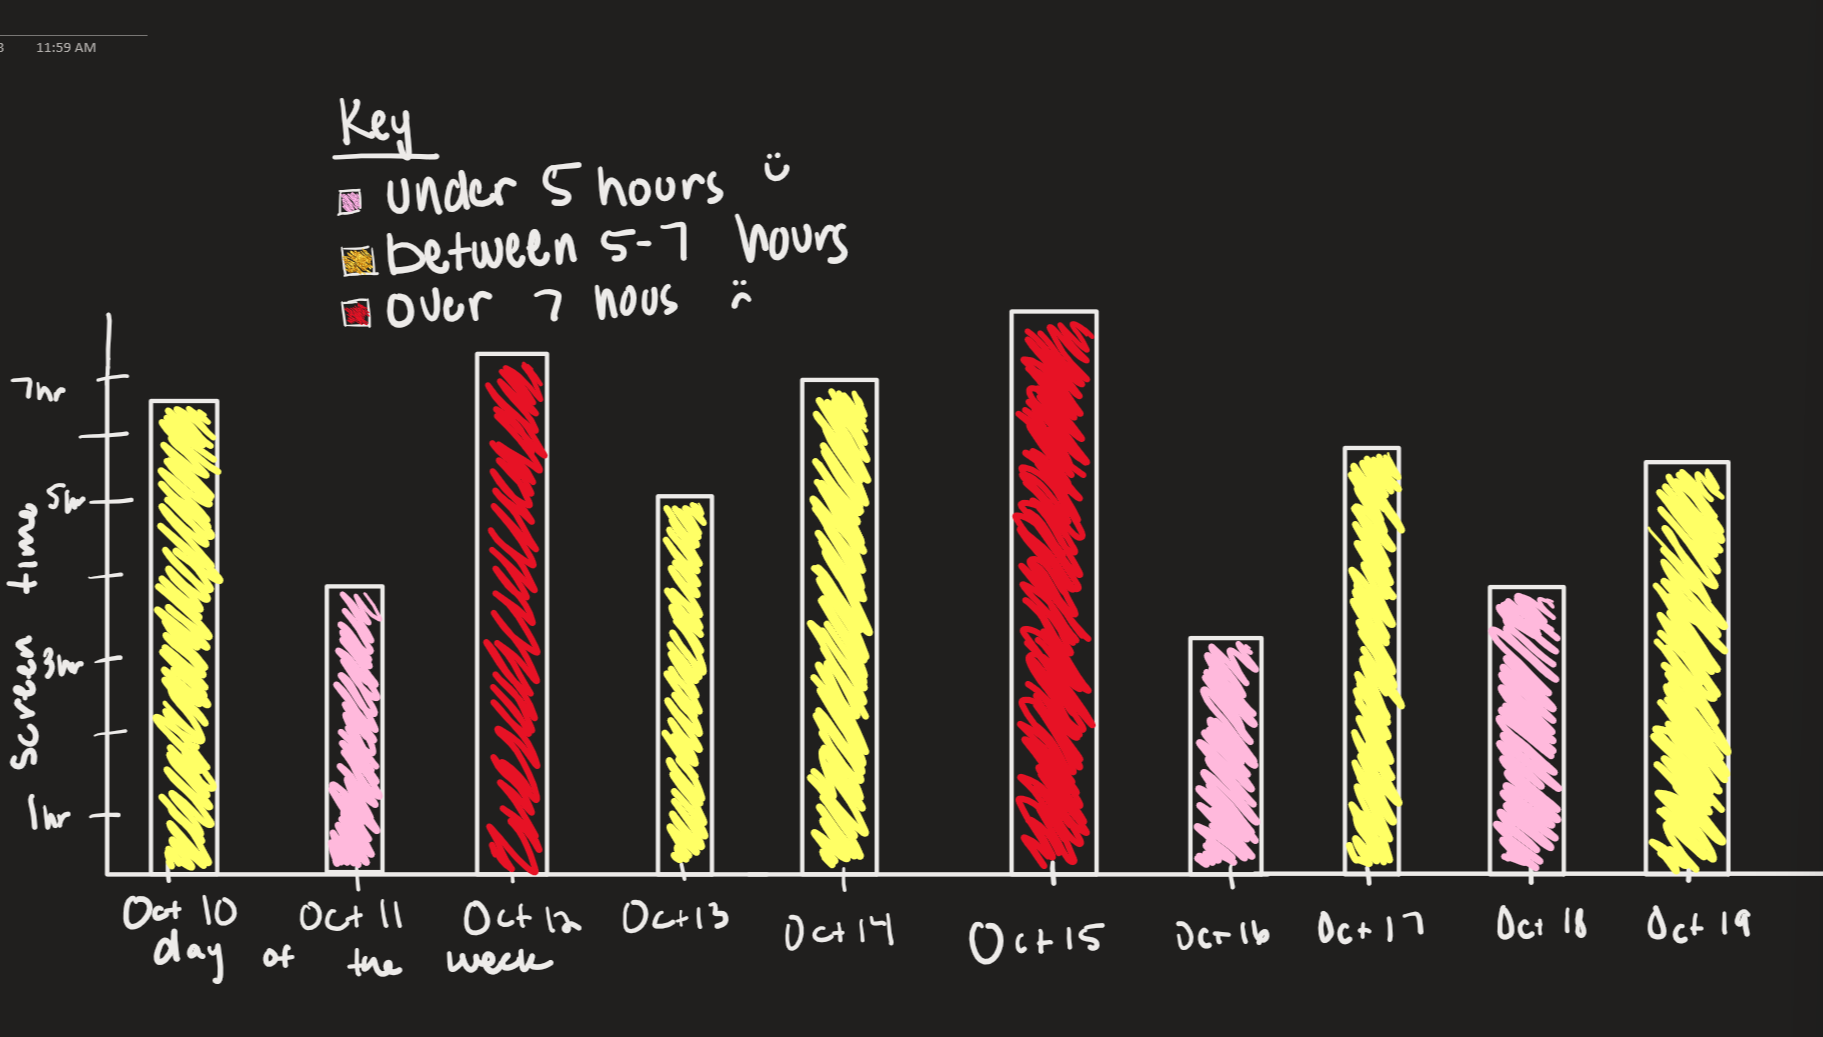 3 11:59 AM
Key
under 5 hours
between 5-7 hours
over 7 hous
7hr
5hr
3hr
1hr
screen time
Oct 10 Oct 11 Oct 12 Oct 13 Oct 14 Oct 15 Oct 16 Oct 17 Oct 18 Oct 19
day of the week